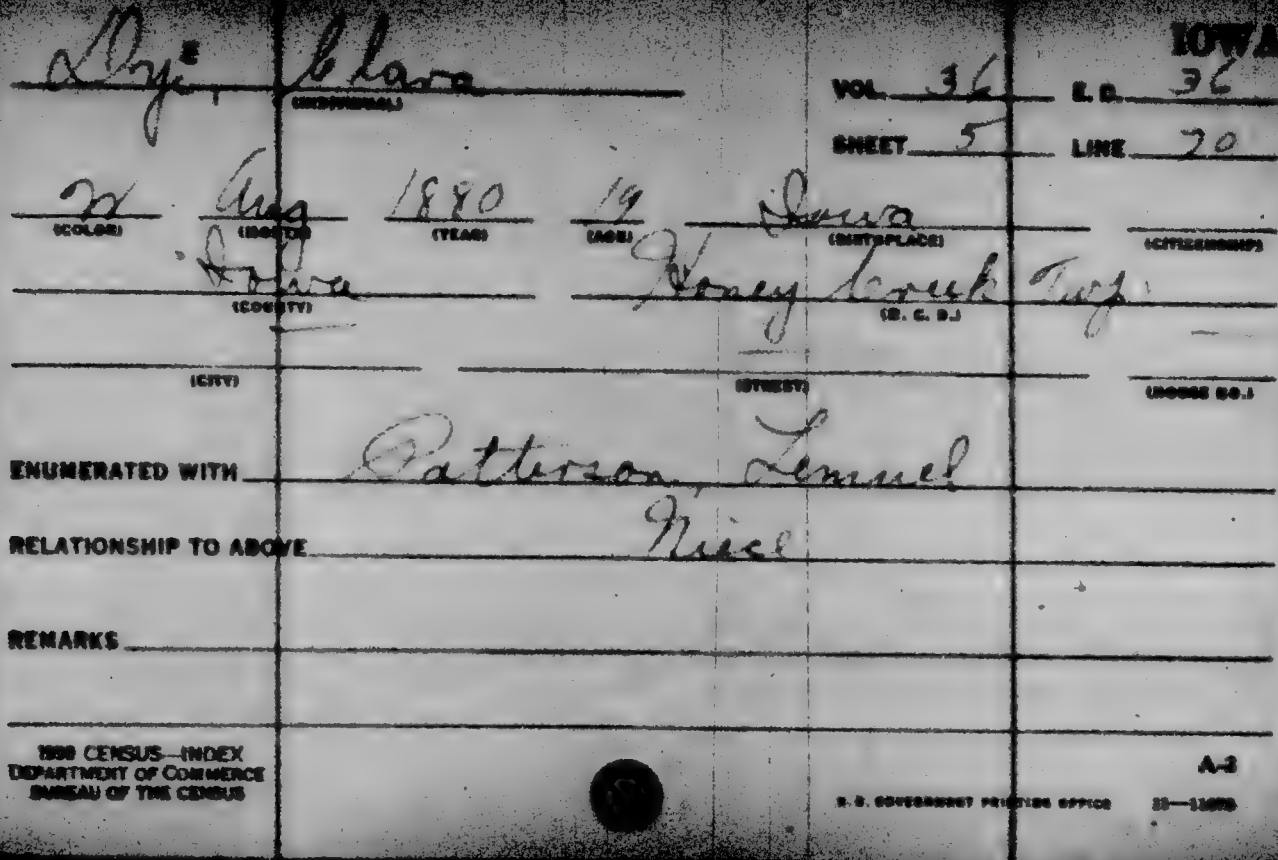 IOWA
Dye, Clara
(INDIVIDUAL)
VOL. 36 E. D. 36
SHEET 5 LINE 70
W Aug 1880 19 Iowa
(COLOR) (MONTH) (YEAR) (AGE) (BIRTHPLACE) (CITIZENSHIP)
Iowa Honey Creek Twp.
(COUNTY) (M. C. D.)
— — —
(CITY) (STREET) (HOUSE NO.)
ENUMERATED WITH Patterson, Lemuel
RELATIONSHIP TO ABOVE Niece
REMARKS
1900 CENSUS—INDEX
DEPARTMENT OF COMMERCE
BUREAU OF THE CENSUS
A-2
U. S. GOVERNMENT PRINTING OFFICE